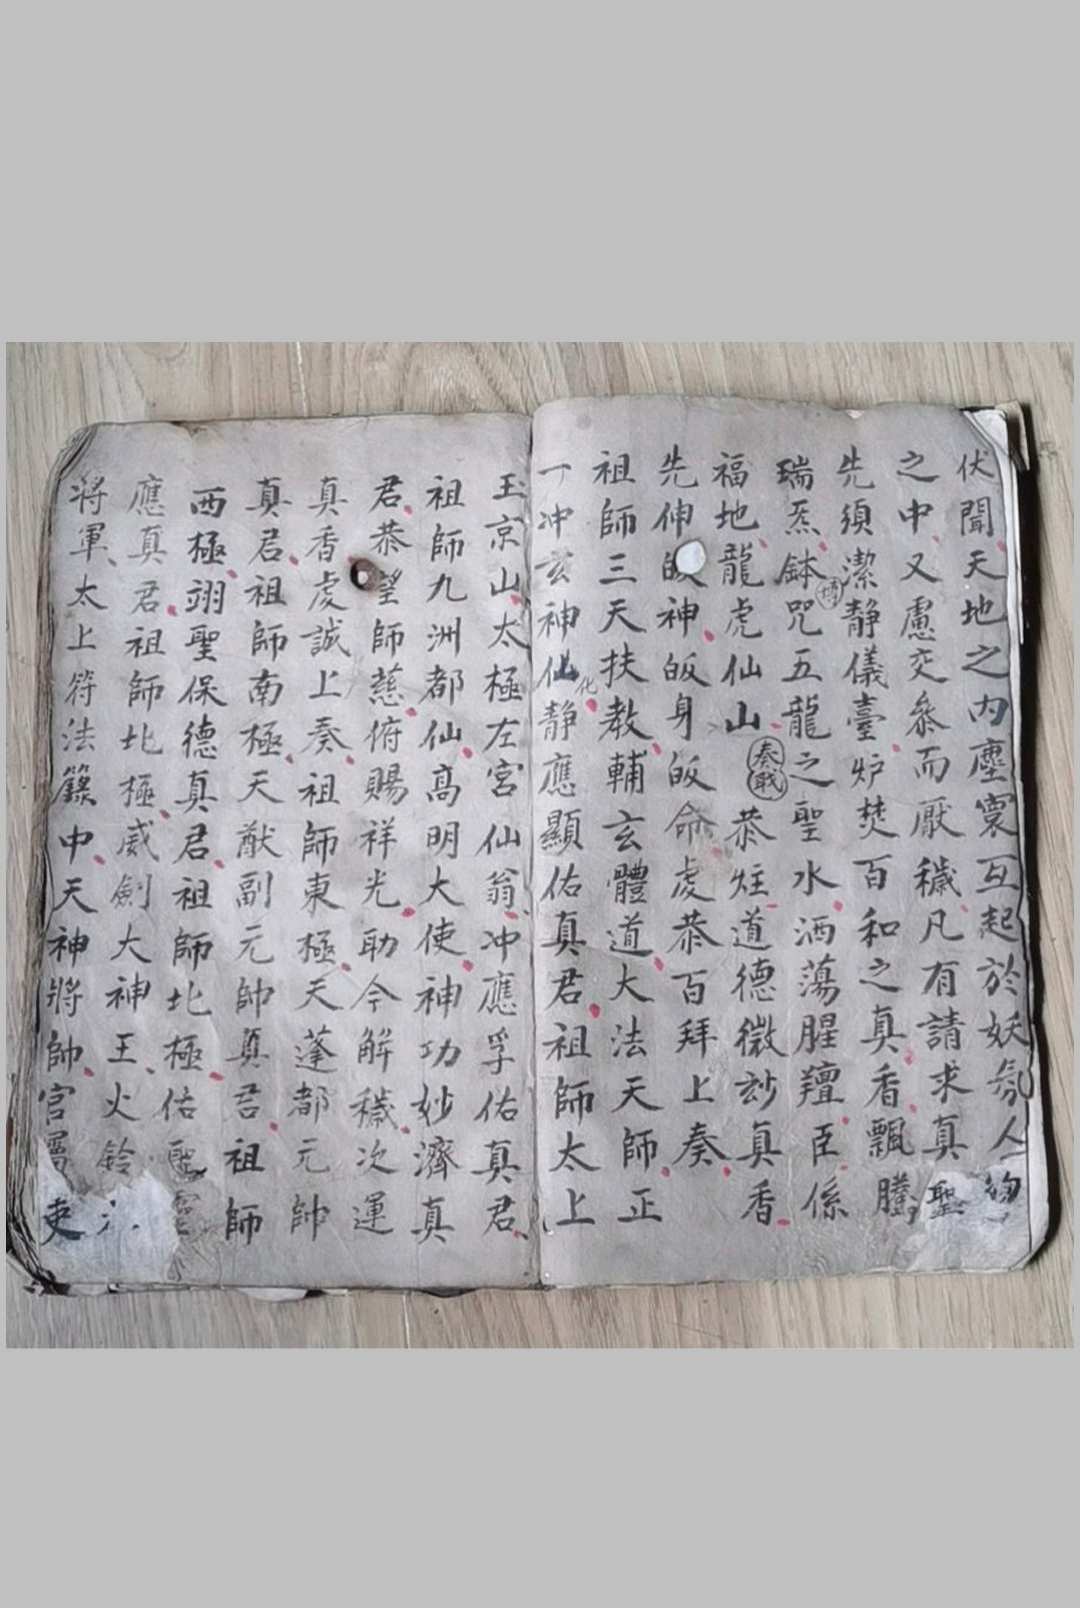 伏聞天地之内塵寰互起於妖氛人物
之中又慮交叅而厭穢凡有請求真聖
先須潔静儀臺炉焚百和之真香飄騰
瑞炁鉢咒五龍之聖水洒蕩腥羶臣係
福地龍虎仙山奏職恭炷道德微玅真香
先伸皈神皈身皈命虔恭百拜上奏
祖師三天扶教輔玄體道大法天師正
一冲玄神仙化静應顯佑真君祖師太上
玉京山太極左宮仙翁冲應孚佑真君
祖師九洲都仙高明大使神功妙濟真
君恭望師慈俯賜祥光助今解穢次運
真香虔誠上奏祖師東極天蓬都元帥
真君祖師南極天猷副元帥真君祖師
西極翊聖保德真君祖師北極佑聖
應真君祖師北極威劍大神王火鈴
將軍太上符法籙中天神將帥官吏